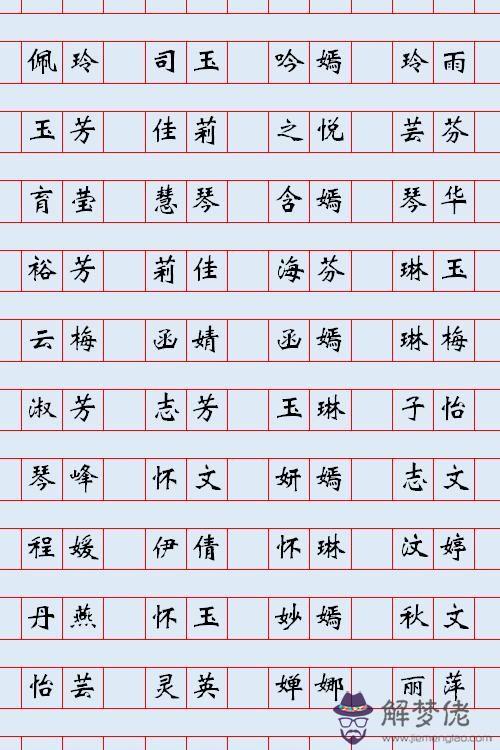 佩玲 司玉 吟嫣 玲雨
玉芳 佳莉 之悦 芸芬
育莹 慧琴 含嫣 琴华
裕芳 莉佳 海芬 琳玉
云梅 函婧 函嫣 琳梅
淑芳 志芳 玉琳 子怡
琴峰 怀文 妍嫣 志文
程媛 伊倩 怀琳 汶婷
丹燕 怀玉 妙嫣 秋文
怡芸 灵英 婵娜 丽萍
解梦佬
www.jiemenglao.com